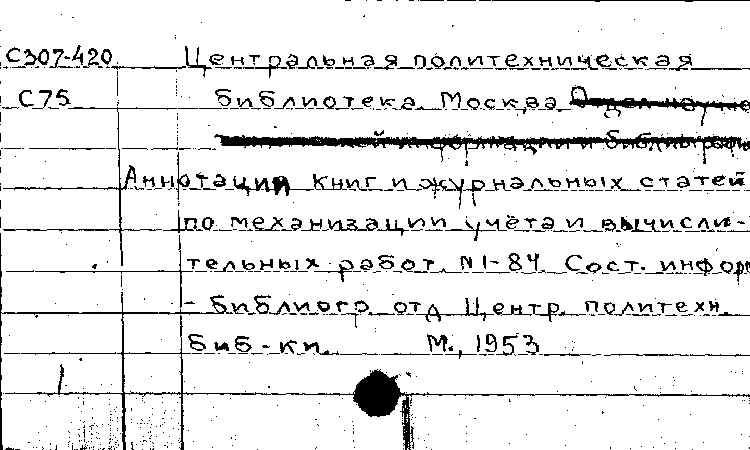 С307-420 Центральная политехническая
С75 библиотека. Москва. Отдел научно
информации и библиографи
Аннотации книг и журнальных статей
по механизации учёта и вычисли-
тельных работ. №1-84. Сост. информ
- библиогр. отд. Центр. политехн.
биб-ки. М., 1953
1